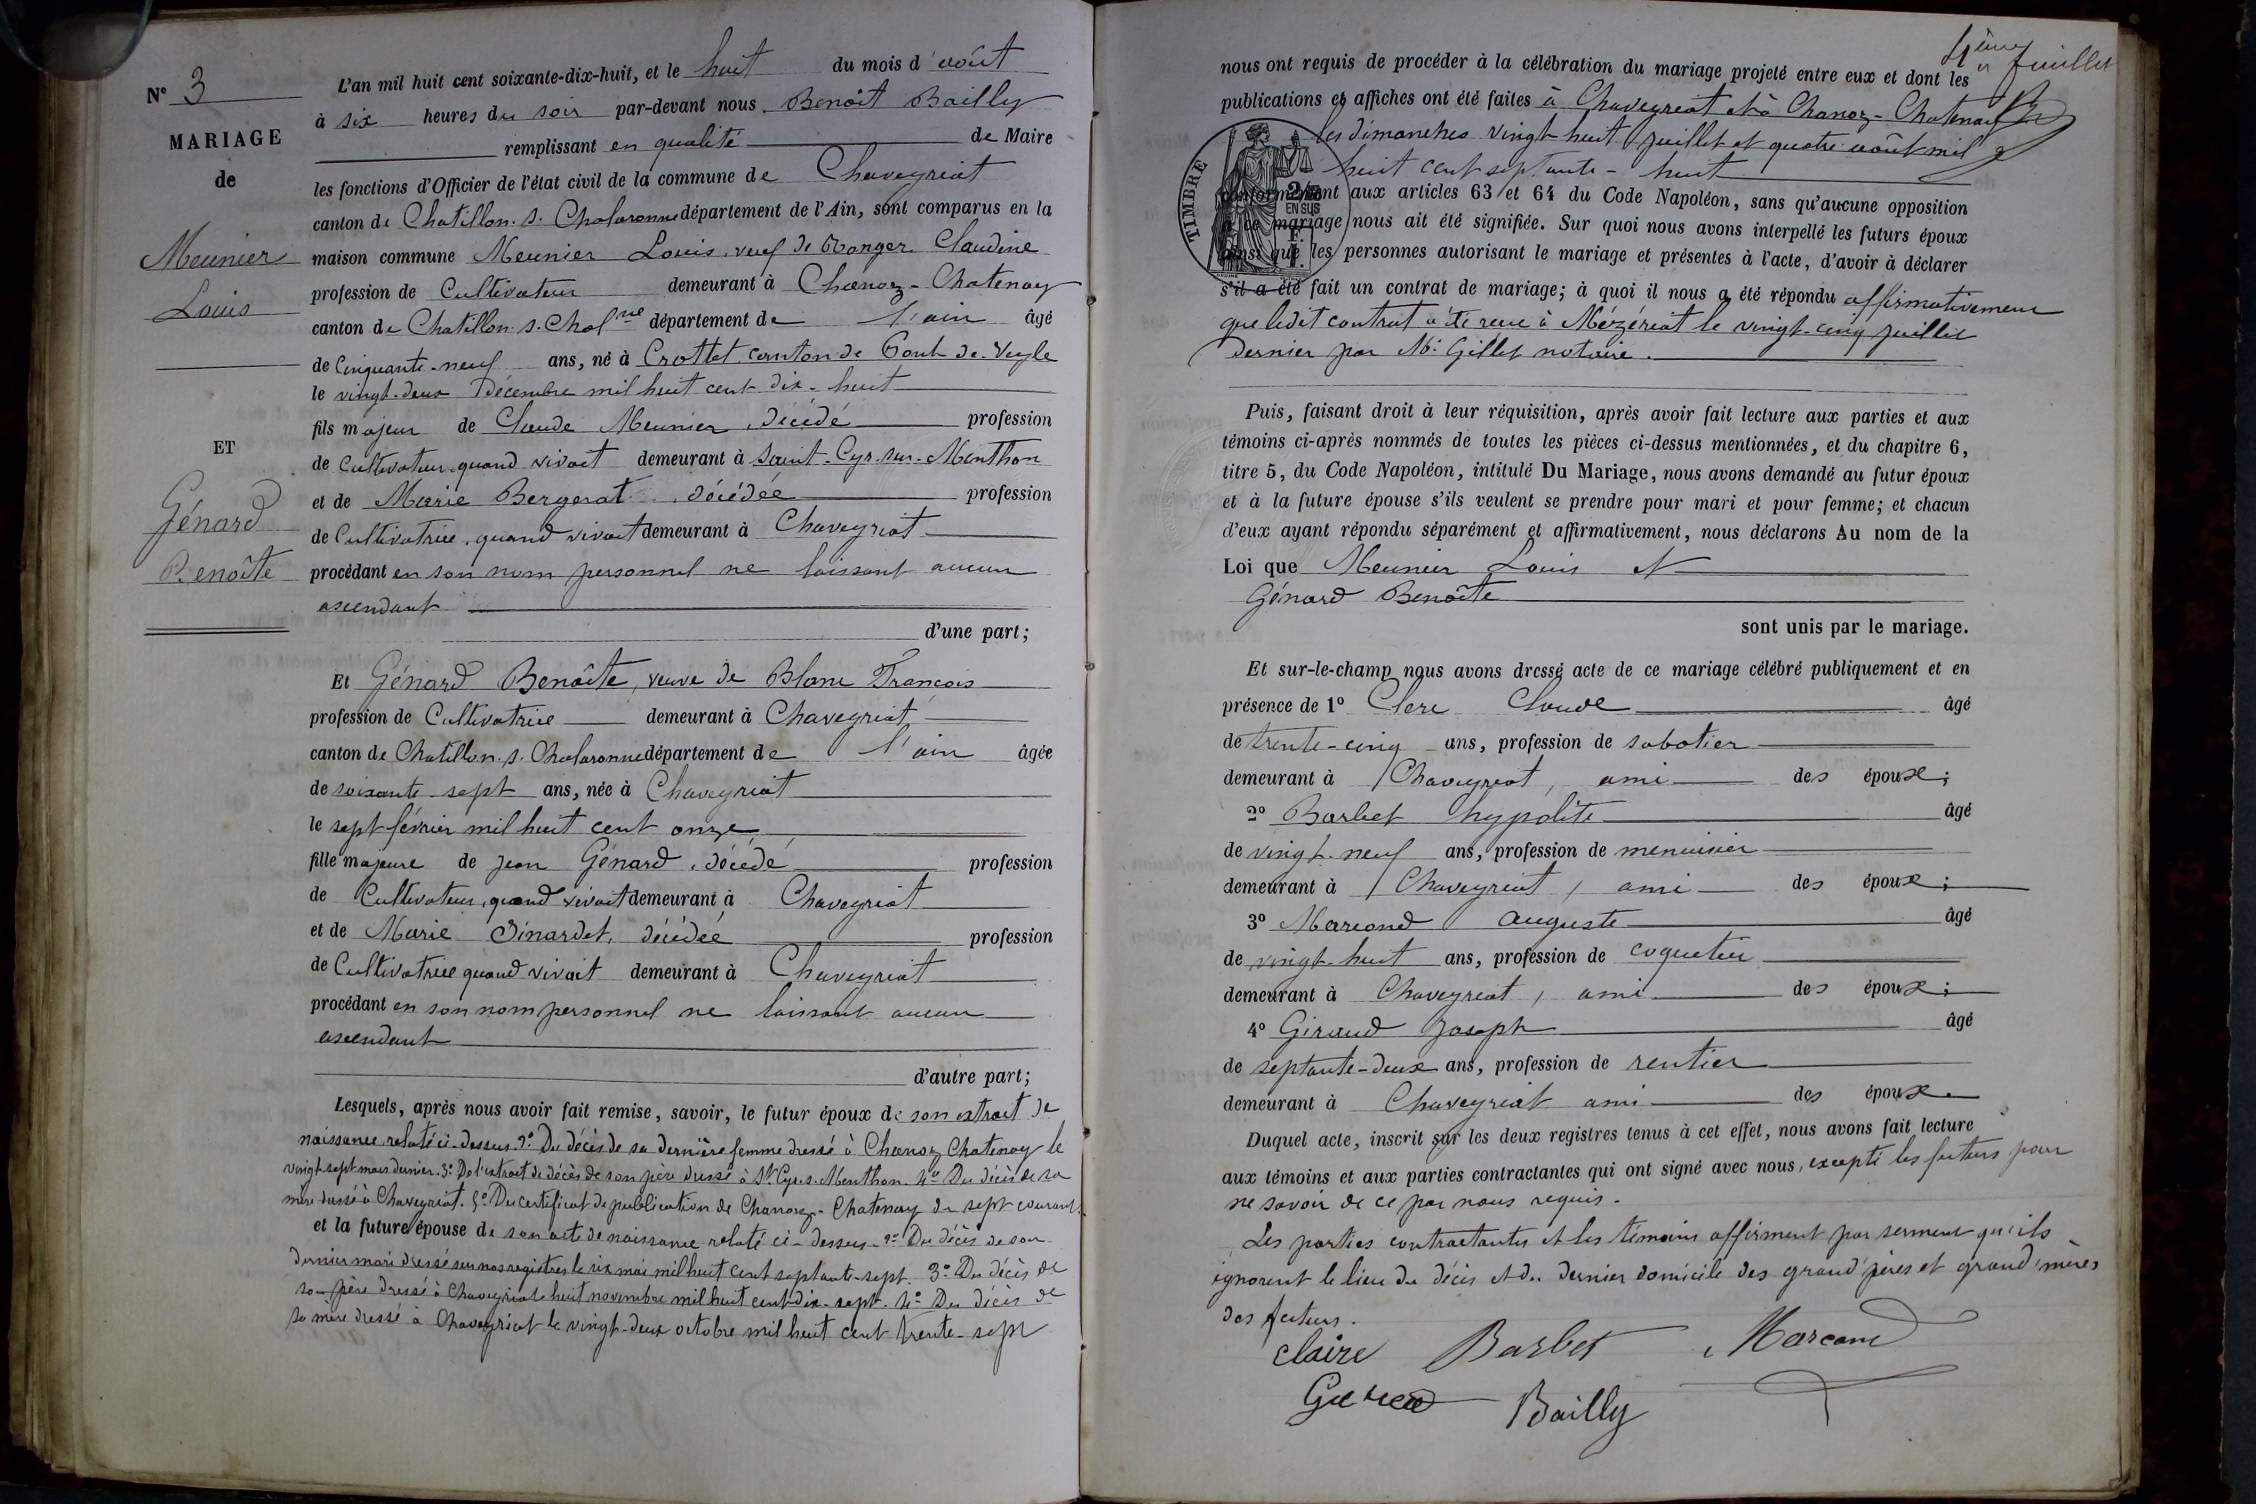 N° 3
MARIAGE
de
Meunier
Louis
ET
Génard
Benoîte
L'an mil huit cent soixante-dix-huit, et le huit du mois d'août
à six heures du soir par-devant nous Benoît Bailly
remplissant en qualité de Maire
les fonctions d'Officier de l'état civil de la commune de Chaveyriat
canton de Chatillon. s. Chalaronne département de l'Ain, sont comparus en la
maison commune Meunier Louis, veuf de Monger Claudine
profession de Cultivateur demeurant à Chanoz-Chatenay
canton de Chatillon. s. Chalne département de l'ain âgé
de Cinquante-neuf ans, né à Crottet canton de Pont-de-Veyle
le vingt-deux Décembre mil huit cent dix-huit
fils majeur de Claude Meunier, décédé profession
de Cultivateur quand vivait demeurant à Saint-Cyr-sur-Menthon
et de Marie Bergerat, décédée profession
de Cultivatrice, quand vivait demeurant à Chaveyriat
procédant en son nom personnel ne laissant aucun
ascendant
d'une part;
Et Génard Benoîte, veuve de Blanc François
profession de Cultivatrice demeurant à Chaveyriat
canton de Chatillon. s. Chalaronne département de l'ain âgée
de soixante-sept ans, née à Chaveyriat
le sept février mil huit cent onze
fille majeure de jean Génard, décédé profession
de Cultivateur, quand vivait demeurant à Chaveyriat
et de Marie Sinardet, décédée profession
de Cultivatrice quand vivait demeurant à Chaveyriat
procédant en son nom personnel ne laissant aucun
ascendant
d'autre part;
Lesquels, après nous avoir fait remise, savoir, le futur époux de son extrait de
naissance relaté ci-dessus. 2° Du décès de sa dernière femme dressé à Chanoz Chatenay le
vingt-sept mars dernier. 3° De l'extrait de décès de son père dressé à St Cyr. s. Menthon. 4° Du décès de sa
mère dressé à Chaveyriat. 5° Du certificat de publication de Chanoz-Chatenay du sept courant.
et la future épouse de son acte de naissance relaté ci-dessus. 2° Du décès de son
dernier mari dressé sur nos registres le six mai mil huit cent septante-sept. 3° Du décès de
son père dressé à Chaveyriat le huit novembre mil huit cent dix-sept. 4° Du décès de
sa mère dressé à Chaveyriat le vingt-deux octobre mil huit cent trente-sept
4ème feuillet
nous ont requis de procéder à la célébration du mariage projeté entre eux et dont les
publications et affiches ont été faites à Chaveyriat et à Chanoz-Chatenay
les dimanches vingt-huit juillet et quatre août mil
huit cent septante-huit
conformément aux articles 63 et 64 du Code Napoléon, sans qu'aucune opposition
à ce mariage nous ait été signifiée. Sur quoi nous avons interpellé les futurs époux
ainsi que les personnes autorisant le mariage et présentes à l'acte, d'avoir à déclarer
s'il a été fait un contrat de mariage; à quoi il nous a été répondu affirmativement
que ledit contrat a été reçu à Mézériat le vingt-cinq juillet
dernier par Me Gillet notaire.
TIMBRE
2/10
EN SUS
1 F.
Puis, faisant droit à leur réquisition, après avoir fait lecture aux parties et aux
témoins ci-après nommés de toutes les pièces ci-dessus mentionnées, et du chapitre 6,
titre 5, du Code Napoléon, intitulé Du Mariage, nous avons demandé au futur époux
et à la future épouse s'ils veulent se prendre pour mari et pour femme; et chacun
d'eux ayant répondu séparément et affirmativement, nous déclarons Au nom de la
Loi que Meunier Louis et
Génard Benoîte
sont unis par le mariage.
Et sur-le-champ nous avons dressé acte de ce mariage célébré publiquement et en
présence de 1° Clere Claude âgé
de trente-cinq ans, profession de sabotier
demeurant à Chaveyriat, ami des époux;
2° Barbet hypolite âgé
de vingt-neuf ans, profession de menuisier
demeurant à Chaveyriat, ami des époux;
3° Marcand auguste âgé
de vingt-huit ans, profession de coquetier
demeurant à Chaveyriat, ami des époux;
4° Giraud Joseph âgé
de septante-deux ans, profession de rentier
demeurant à Chaveyriat ami des époux.
Duquel acte, inscrit sur les deux registres tenus à cet effet, nous avons fait lecture
aux témoins et aux parties contractantes qui ont signé avec nous, excepté les futurs pour
ne savoir de ce par nous requis.
Les parties contractantes et les témoins affirment par serment qu'ils
ignorent le lieu du décès et du dernier domicile des grand'pères et grand'mères
des futurs.
Claire Barbet Marcand
Bailly